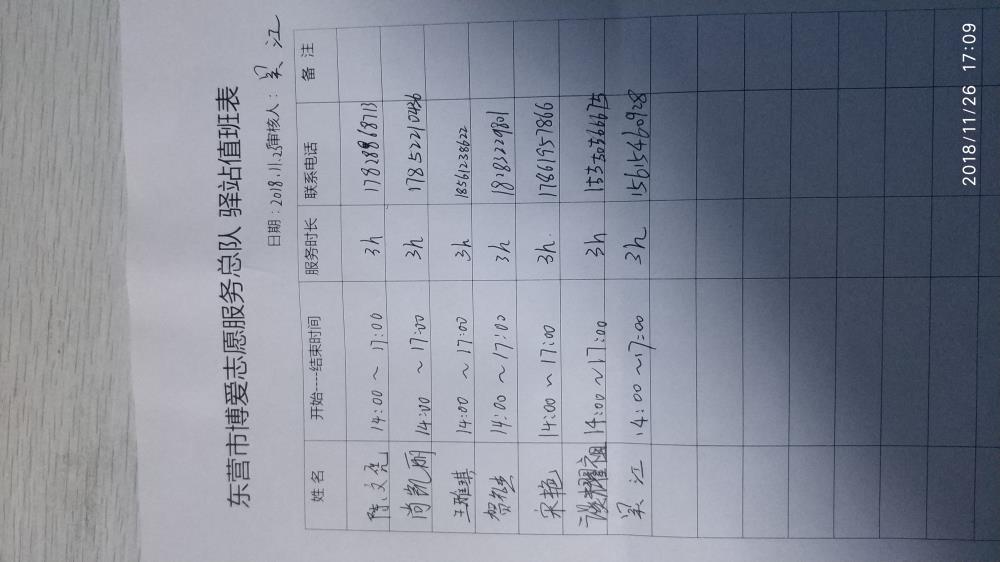 东营市博爱志愿服务总队 驿站值班表
日期：2018.11.25审核人：吴江
姓名 开始----结束时间 服务时长 联系电话 备注
陈文亮 14:00～17:00 3h 17828868713
尚凯丽 14:00～17:00 3h 17852210436
王雅琪 14:00～17:00 3h 18561238622
14:00～17:00 3h 18283229801
宋艳 14:00～17:00 3h. 17861957866
14:00～17:00 3h 15550566675
吴江 14:00～17:00 3h 15615460928
2018/11/26 17:09